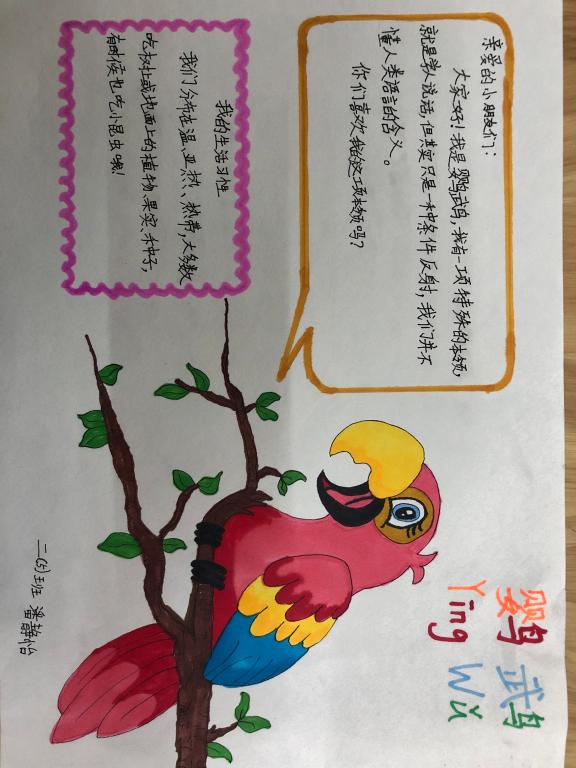 亲爱的小朋友们：
大家好！我是鹦鹉，我有一项特殊的本领，
就是学人说话，但其实只是一种条件反射，我们并不
懂人类语言的含义。
你们喜欢我的这项本领吗？
鹦鹉
Yīng Wǔ
我的生活习性
我们分布在温、亚热、热带，大多数
吃树上或地面上的植物、果实、种子，
有时候也吃小昆虫哦！
二(5)班 潘静怡